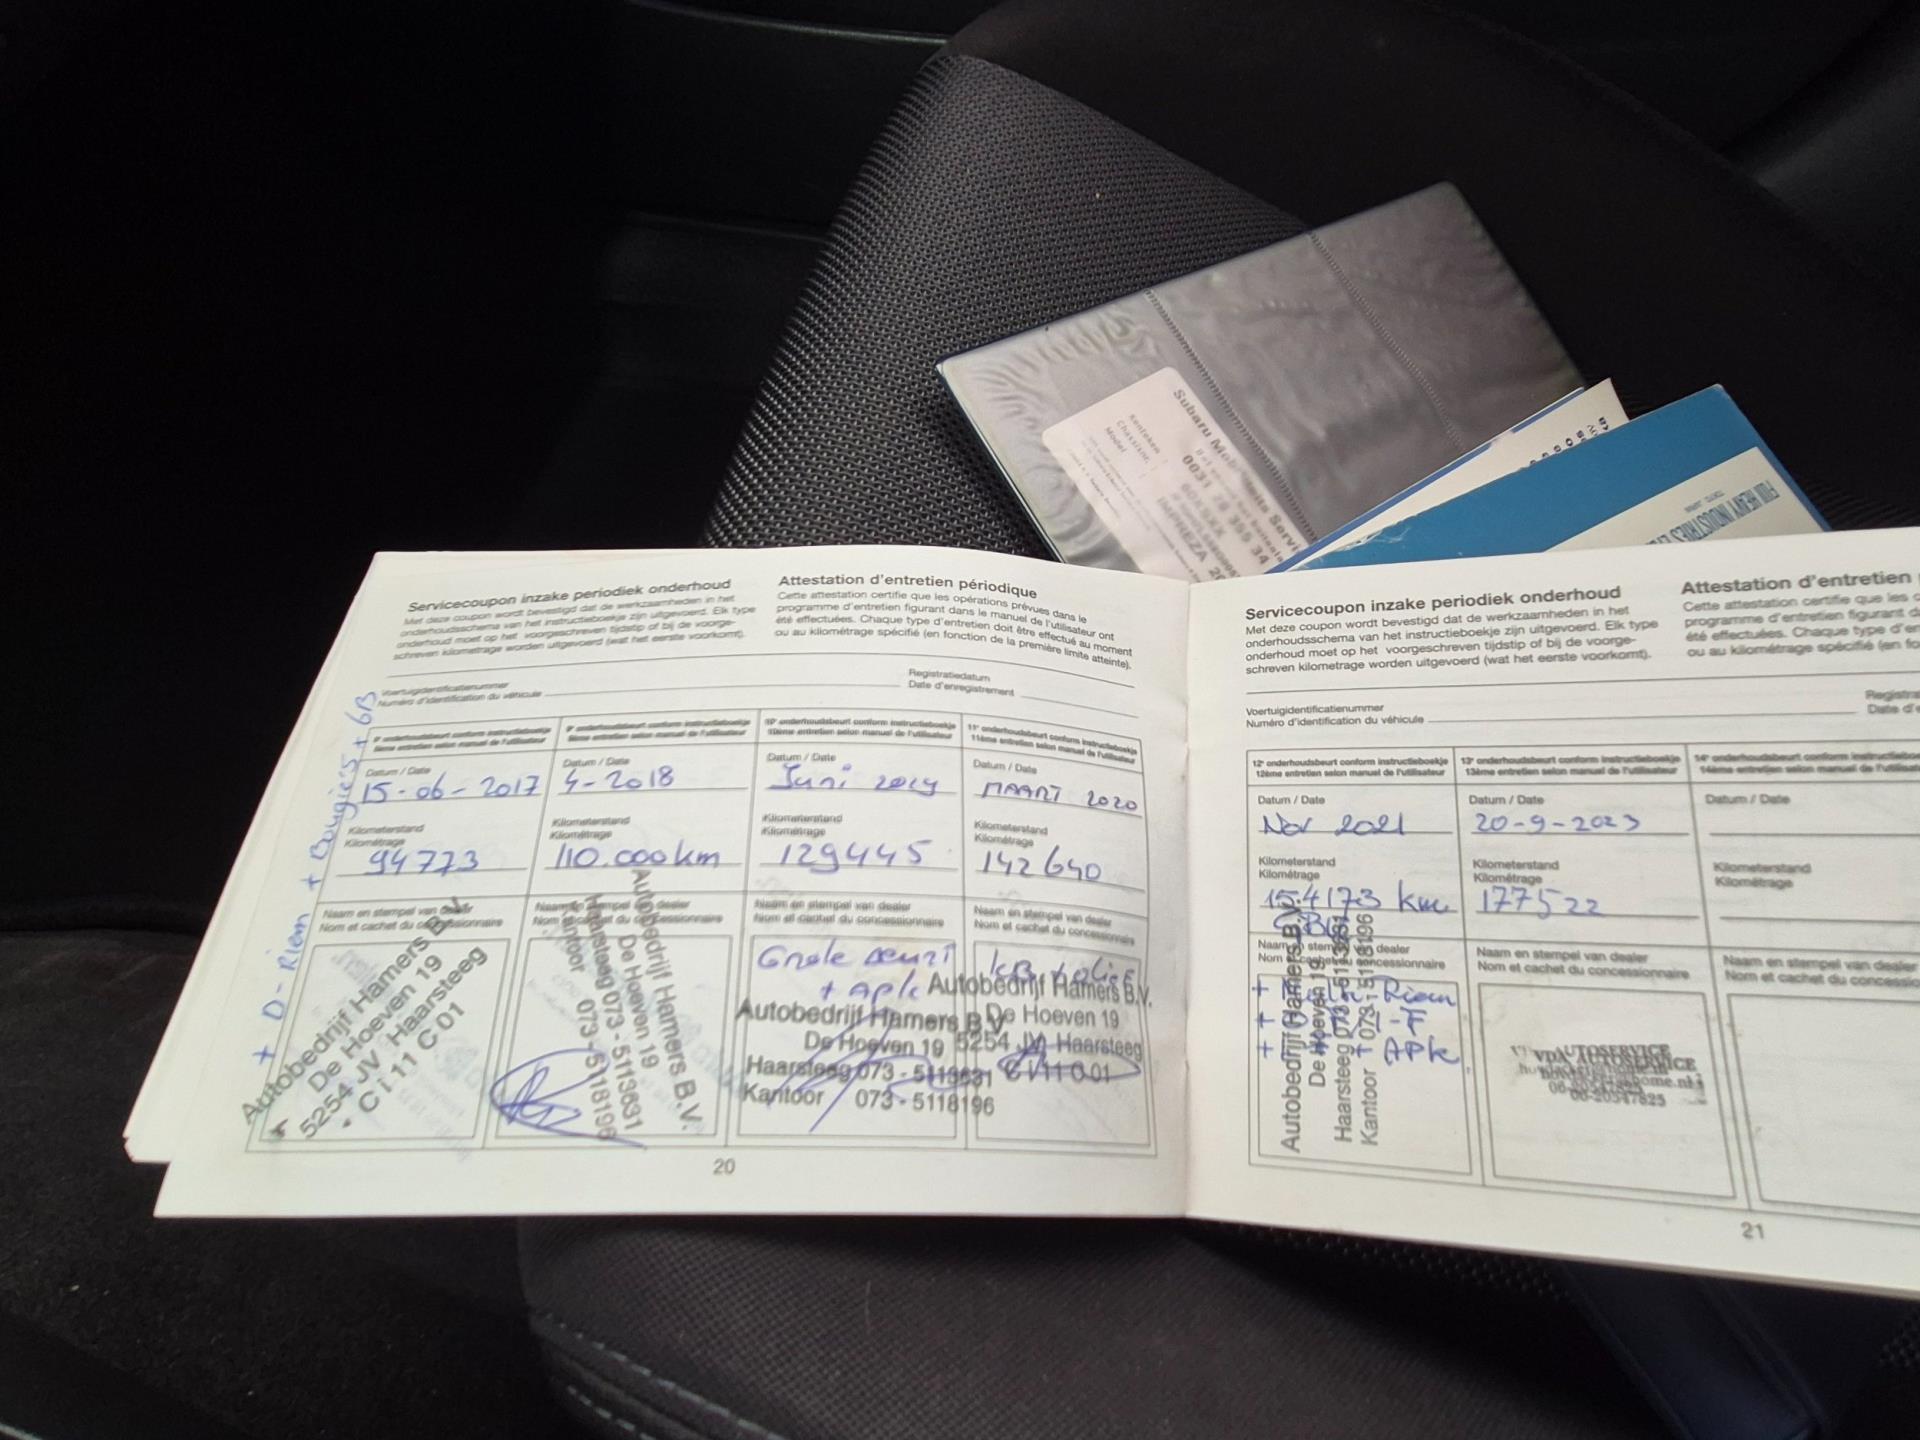 Subaru Mob
0031
IMPREZA
FUJI HEAVY INDUSTRIES
Servicecoupon inzake periodiek onderhoud
Met deze coupon wordt bevestigd dat de werkzaamheden in het
onderhoudsschema van het instructieboekje zijn uitgevoerd. Elk type
onderhoud moet op het voorgeschreven tijdstip of bij de voorge-
schreven kilometrage worden uitgevoerd (wat het eerste voorkomt).
Attestation d'entretien périodique
Cette attestation certifie que les opérations prévues dans le
programme d'entretien figurant dans le manuel de l'utilisateur ont
été effectuées. Chaque type d'entretien doit être effectué au moment
ou au kilométrage spécifié (en fonction de la première limite atteinte).
Voertuigidentificatienummer
Numéro d'identification du véhicule
Registratiedatum
Date d'enregistrement
+ D-Riem + Bougies + 6B
8e onderhoudsbeurt conform instructieboekje
8ème entretien selon manuel de l'utilisateur
Datum / Date
15-06-2017
Kilometerstand
Kilométrage
94773
Naam en stempel van dealer
Nom et cachet du concessionnaire
Autobedrijf Hamers B.V.
De Hoeven 19
5254 JV Haarsteeg
9e onderhoudsbeurt conform instructieboekje
9ème entretien selon manuel de l'utilisateur
Datum / Date
4-2018
Kilometerstand
Kilométrage
110.000km
Naam en stempel van dealer
Nom et cachet du concessionnaire
Autobedrijf Hamers B.V.
De Hoeven 19
Haarsteeg 073 - 5113631
Kantoor 073 - 5118196
10e onderhoudsbeurt conform instructieboekje
10ème entretien selon manuel de l'utilisateur
Datum / Date
Juni 2019
Kilometerstand
Kilométrage
129445
Naam en stempel van dealer
Nom et cachet du concessionnaire
Grote beurt
+ apk
Autobedrijf Hamers B.V.
De Hoeven 19
Haarsteeg 073 - 5113631
Kantoor 073 - 5118196
11e onderhoudsbeurt conform instructieboekje
11ème entretien selon manuel de l'utilisateur
Datum / Date
MAART 2020
Kilometerstand
Kilométrage
142640
Naam en stempel van dealer
Nom et cachet du concessionnaire
Autobedrijf Hamers B.V.
De Hoeven 19
5254 JV Haarsteeg
20
Servicecoupon inzake periodiek onderhoud
Met deze coupon wordt bevestigd dat de werkzaamheden in het
onderhoudsschema van het instructieboekje zijn uitgevoerd. Elk type
onderhoud moet op het voorgeschreven tijdstip of bij de voorge-
schreven kilometrage worden uitgevoerd (wat het eerste voorkomt).
Attestation d'entretien
Cette attestation certifie que les
programme d'entretien figurant
été effectuées. Chaque type
ou au kilométrage spécifié (en
Voertuigidentificatienummer
Numéro d'identification du véhicule
12e onderhoudsbeurt conform instructieboekje
12ème entretien selon manuel de l'utilisateur
Datum / Date
Nov 2021
Kilometerstand
Kilométrage
154173 km
Naam en stempel van dealer
Nom et cachet du concessionnaire
+ Riem
+ APK
Autobedrijf Hamers B.V.
De Hoeven 19
Haarsteeg 073 - 5113631
Kantoor 073 - 5118196
13e onderhoudsbeurt conform instructieboekje
13ème entretien selon manuel de l'utilisateur
Datum / Date
20-9-2023
Kilometerstand
Kilométrage
177522
Naam en stempel van dealer
Nom et cachet du concessionnaire
VDA AUTOSERVICE
14e onderhoudsbeurt conform instructieboekje
14ème entretien selon manuel de
Datum / Date
Kilometerstand
Kilométrage
Naam en stempel van dealer
Nom et cachet du concessionnaire
21